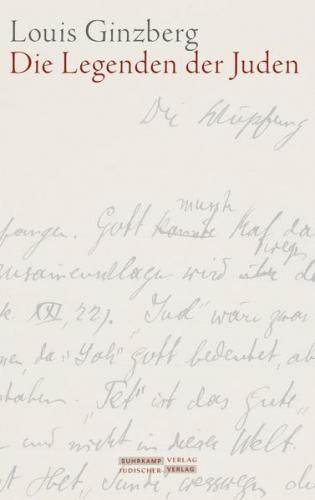 Louis Ginzberg
Die Legenden der Juden
Die Schöpfung
musste
fangen. Gott konnte Kaf da
wegen
zusammenlage wird über d
k. XXI, 22). "Jud" wäre zwar
nen, da "Jah" Gott bedeutet, ab
staben. "Tet" ist das Gute,
und nicht in dieser Welt.
Het, Sünde,
SUHRKAMP VERLAG
JÜDISCHER VERLAG